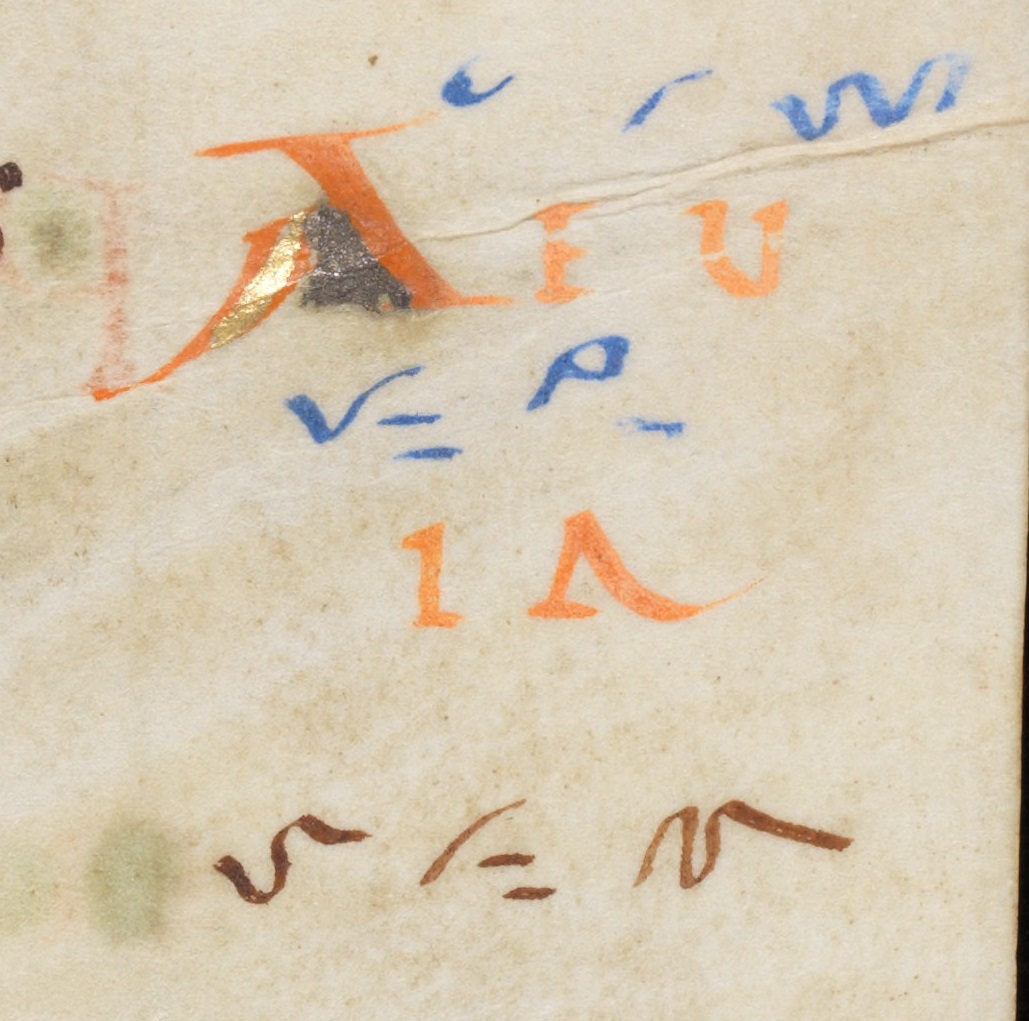 A E U
I A